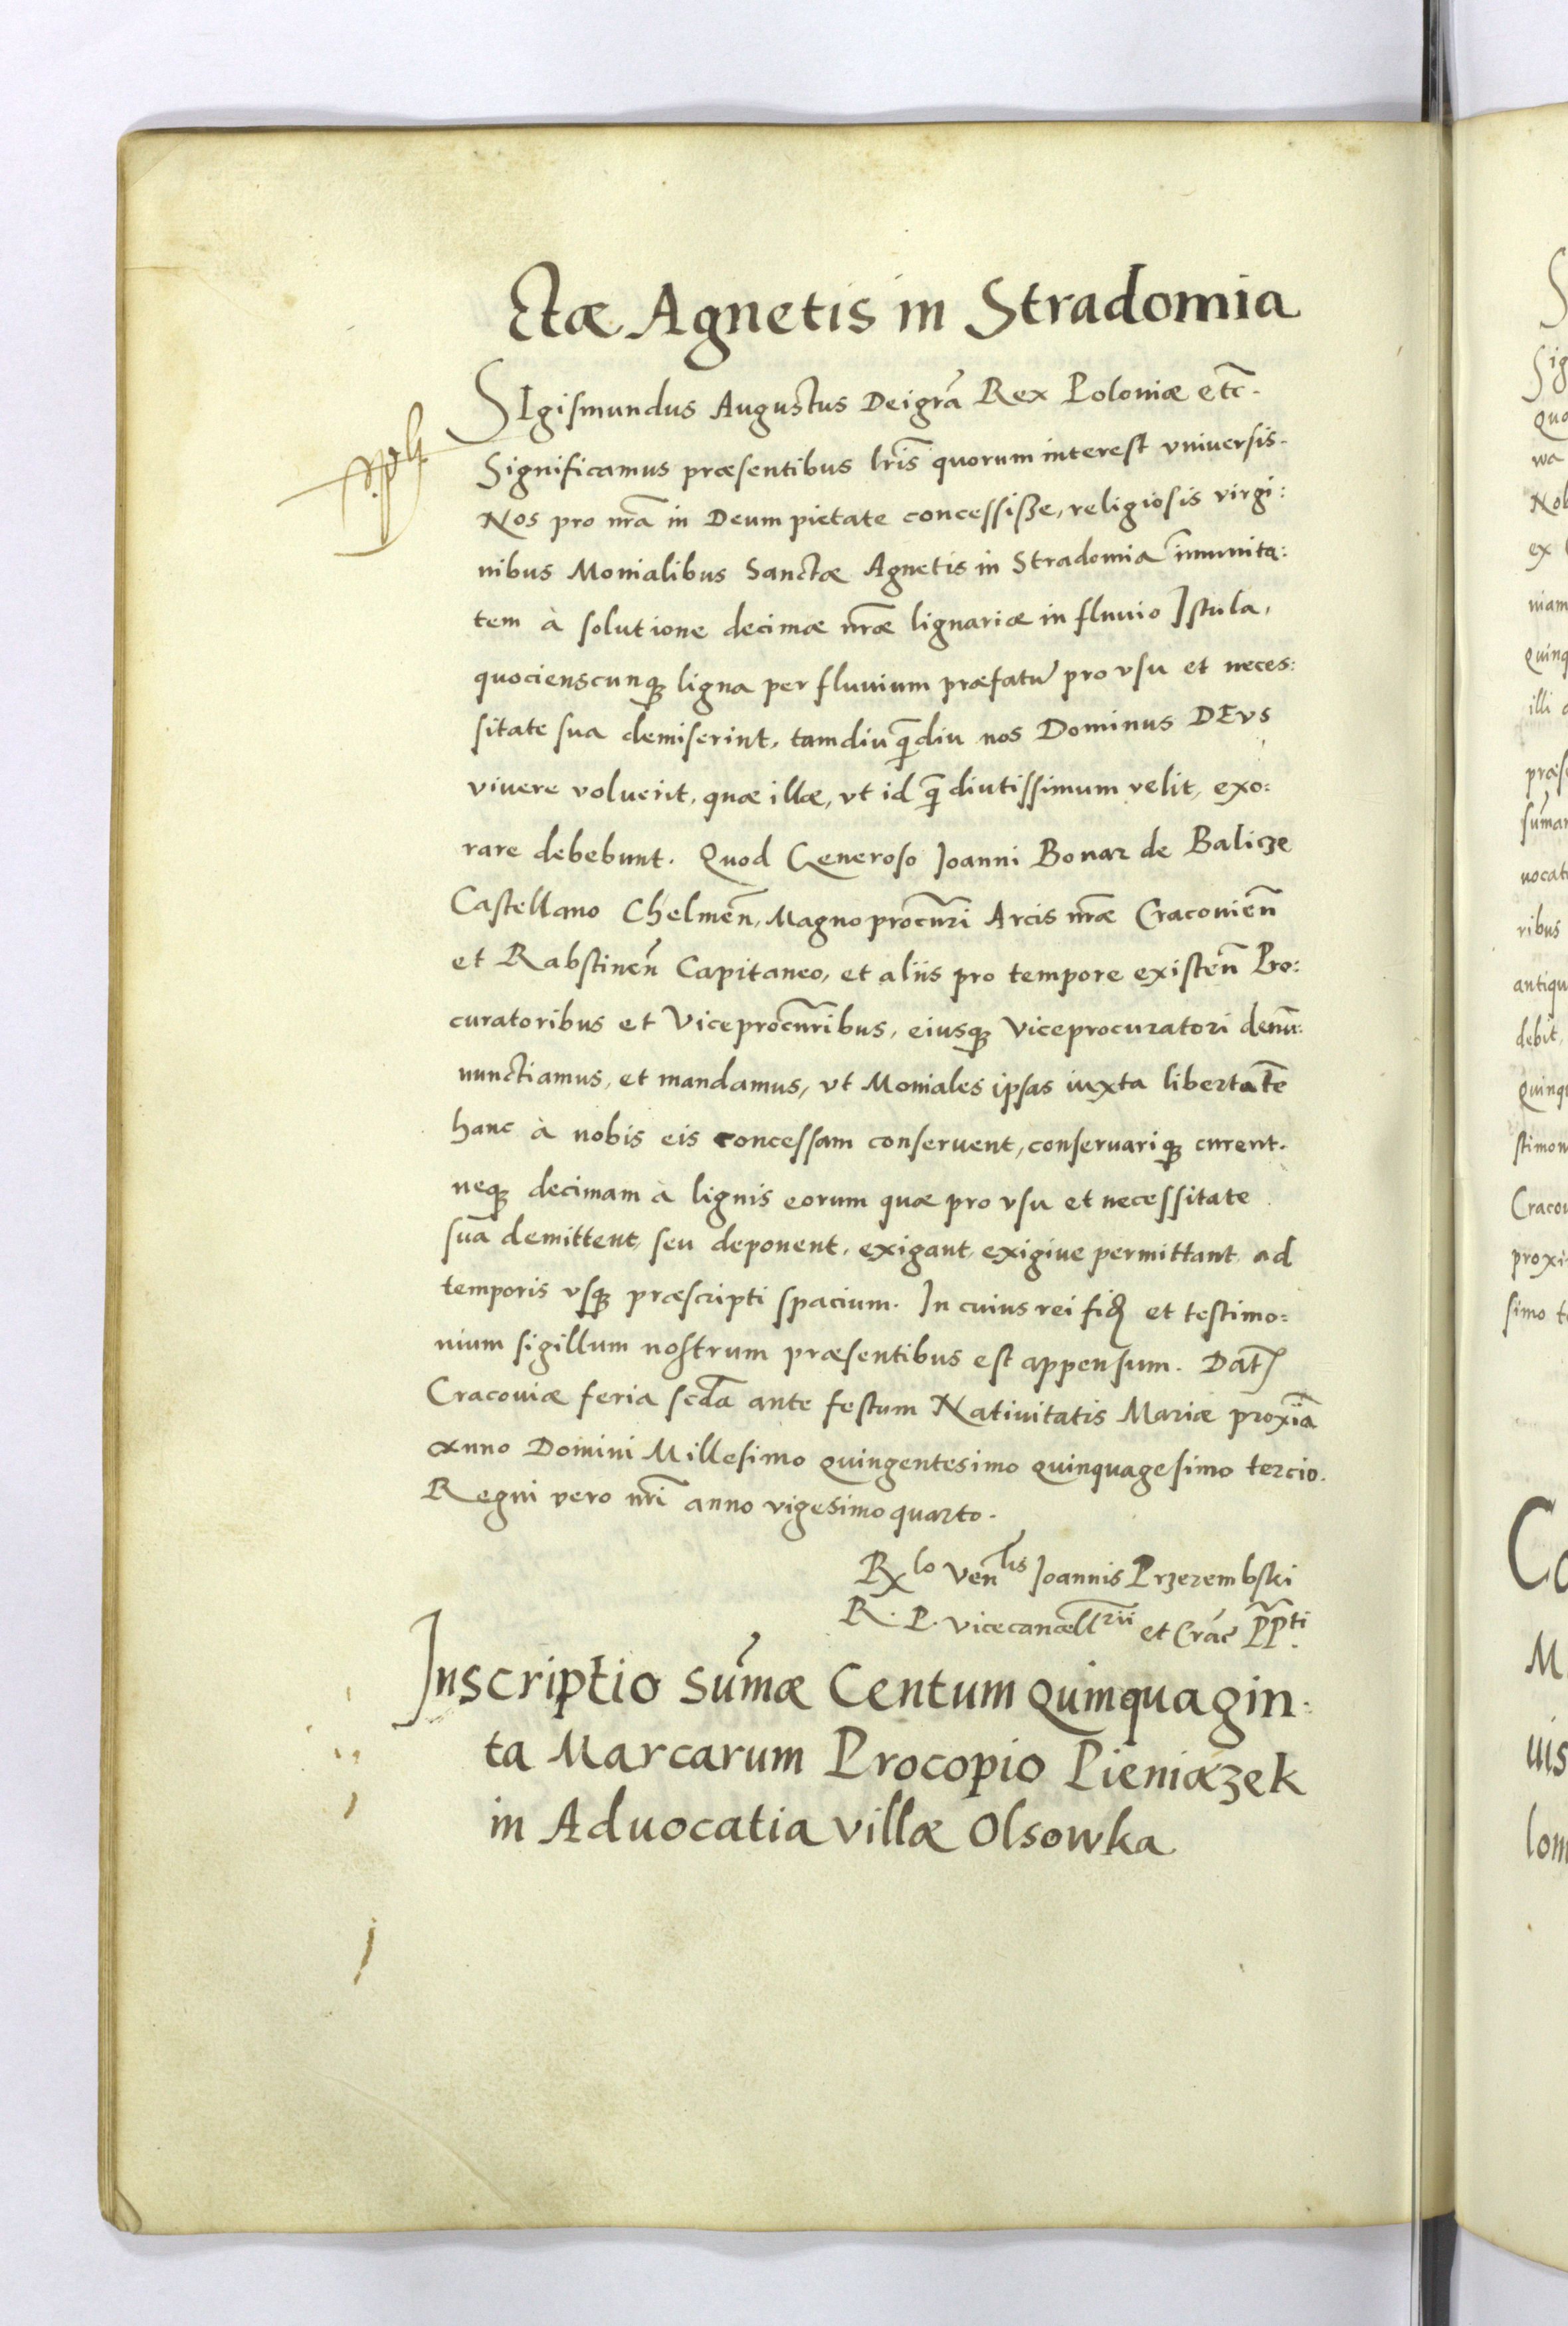 ctæ Agnetis in Stradomia
SIgismundus Augustus Dei grã Rex Poloniæ etc̃.
Significamus præsentibus lr̃is quorum interest vniuersis.
Nos pro nr̃a in Deum pietate concessisse, religiosis virgi:
nibus Monialibus Sanctæ Agnetis in Stradomia im̃unita:
tem à solutione decimæ nr̃æ lignariæ in fluuio Istula,
quocienscunqꝫ ligna per fluuium præfatũ pro vsu et neces:
sitate sua demiserint, tamdiu q̃diu nos Dominus DEvs
viuere voluerit, quæ illæ, vt id q̃ diutissimum velit, exo:
rare debebunt. Quod Generoso Ioanni Bonar de Balicze
Castellano Chelmen̄, Magnoprocur̃ri Arcis nr̃æ Cracouien̄
et Rabstinen̄ Capitaneo, et aliis pro tempore existen̄ Pro:
curatoribus et Viceprocur̃ribus, eiusqꝫ Viceprocuratori denũ:
nunctiamus, et mandamus, vt Moniales ipsas iuxta libertatẽ
hanc à nobis eis concessam conseruent, conseruariqꝫ curent.
neqꝫ decimam à lignis eorum quæ pro vsu et necessitate
sua demittent, seu deponent, exigant, exigiue permittant, ad
temporis vsqꝫ præscripti spacium. In cuius rei fidꝫ et testimo:
nium sigillum nostrum præsentibus est appensum. Dat̃
Cracouiæ feria scd̃a ante festum Natiuitatis Mariæ proxĩa
Anno Domini Millesimo quingentesimo quinquagesimo tercio.
Regni vero nr̃i anno vigesimo quarto.
Rx lo Ven lis Ioannis Przerembski
R. P. vicecancell rii et Crac̃ PP ti.
Inscriptio Sum̃æ Centum Quinquagin:
ta Marcarum Procopio Pieniązek
in Aduocatia villæ Olsowka